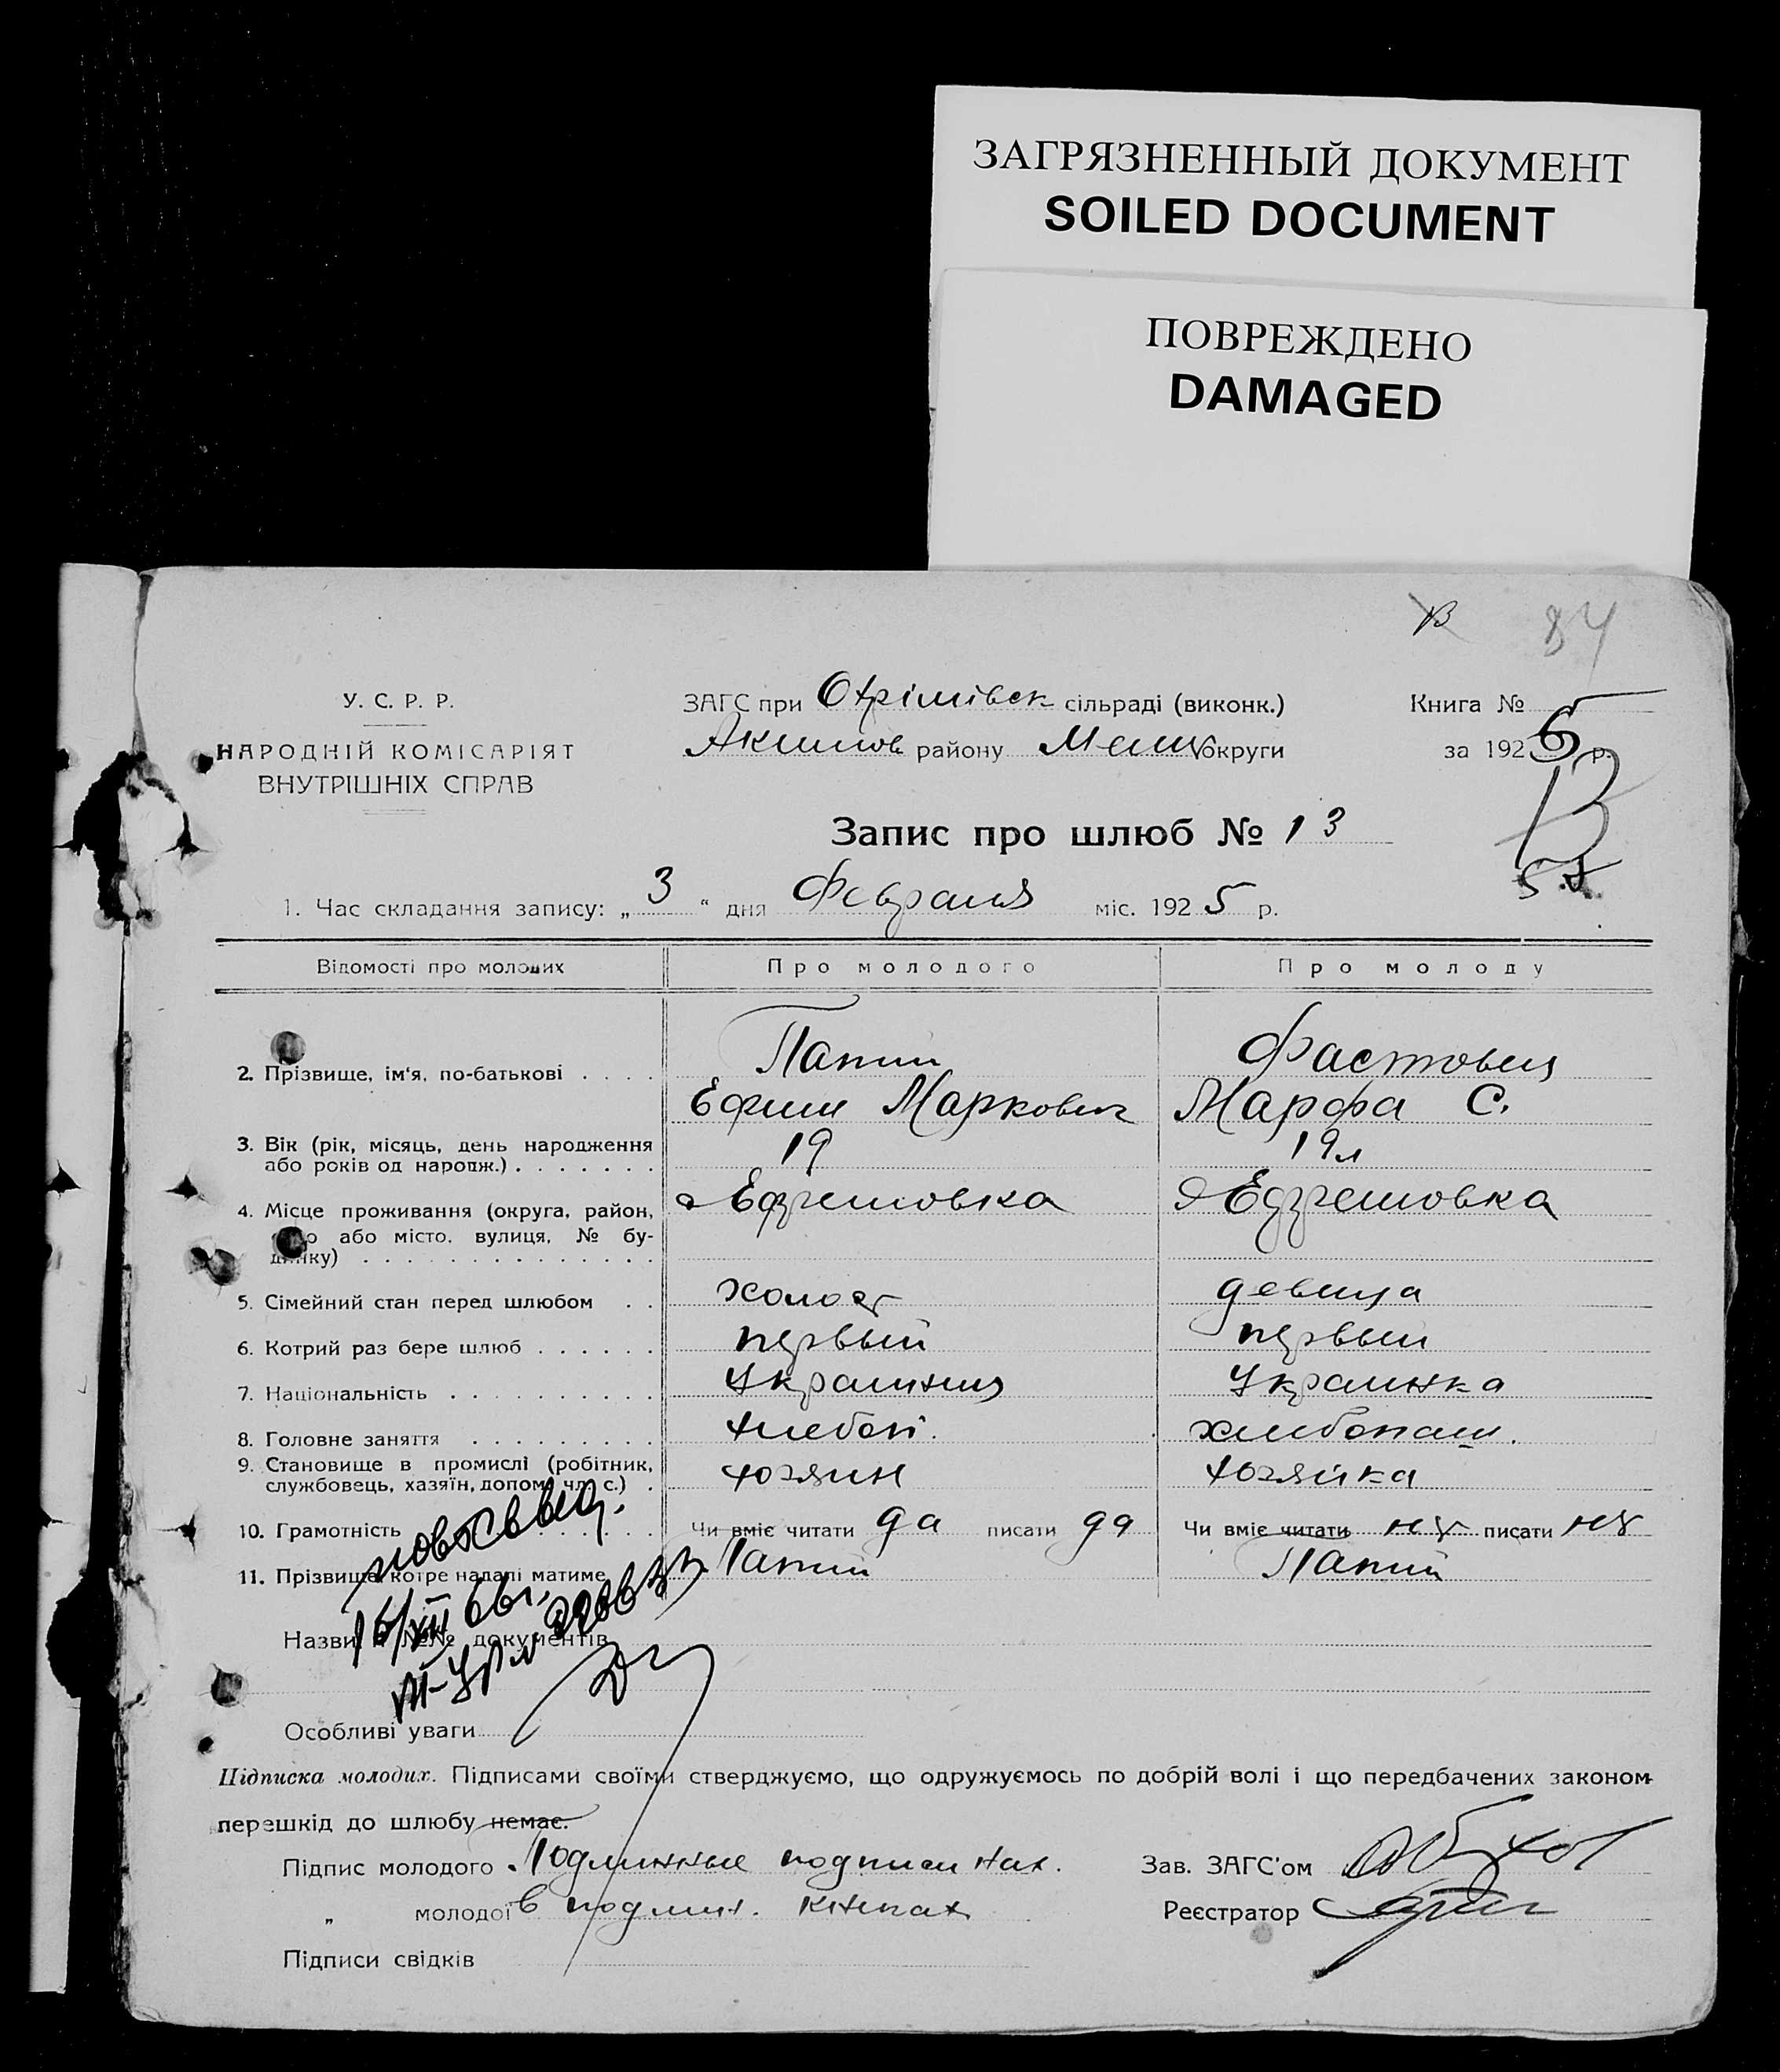 ЗАГРЯЗНЕННЫЙ ДОКУМЕНТ
SOILED DOCUMENT
ПОВРЕЖДЕНО
DAMAGED
84
У. С. Р. Р.
НАРОДНІЙ КОМІСАРІЯТ
ВНУТРІШНІХ СПРАВ
ЗАГС при сільраді (виконк.)
Акимов району округи
Книга №
за 192 р.
Запис про шлюб № 13
1. Час складання запису: „ 3 “ дня Февраля міс. 192 5 р.
Відомості про молодих Про молодого Про молоду
2. Прізвище, ім'я, по-батькові . . . . Папий Фастовец
Ефим Маркович Марфа С.
3. Вік (рік, місяць, день народження
або років од народж.) . . . . . . . 19 19 л
4. Місце проживання (округа, район, Ефремовка Ефремовка
або місто, вулиця, № бу-
динку) . . . . . . . . . . . . . .
5. Сімейний стан перед шлюбом . . холост девица
6. Котрий раз бере шлюб . . . . . . первый первый
7. Національність . . . . . . . . . . Украинец Украинка
8. Головне заняття . . . . . . . . . хлебоп. хлебопаш.
9. Становище в промислі (робітник,
службовець, хазяїн, допом. чл. с.) . хозяин хозяйка
10. Грамотність Чи вміє читати да писати да Чи вміє читати нет писати нет
11. Прізвище, котре надалі матиме Папий Папий
повт свид.
15/XII 66г.
Назви і №№ документів
Особливі уваги
Підписка молодих. Підписами своїми стверджуємо, що одружуємось по добрій волі і що передбачених законом
перешкід до шлюбу немає.
Підпис молодого Подлинные подписи нах. Зав. ЗАГС'ом
„ молодої в подлин. книгах Реєстратор
Підписи свідків